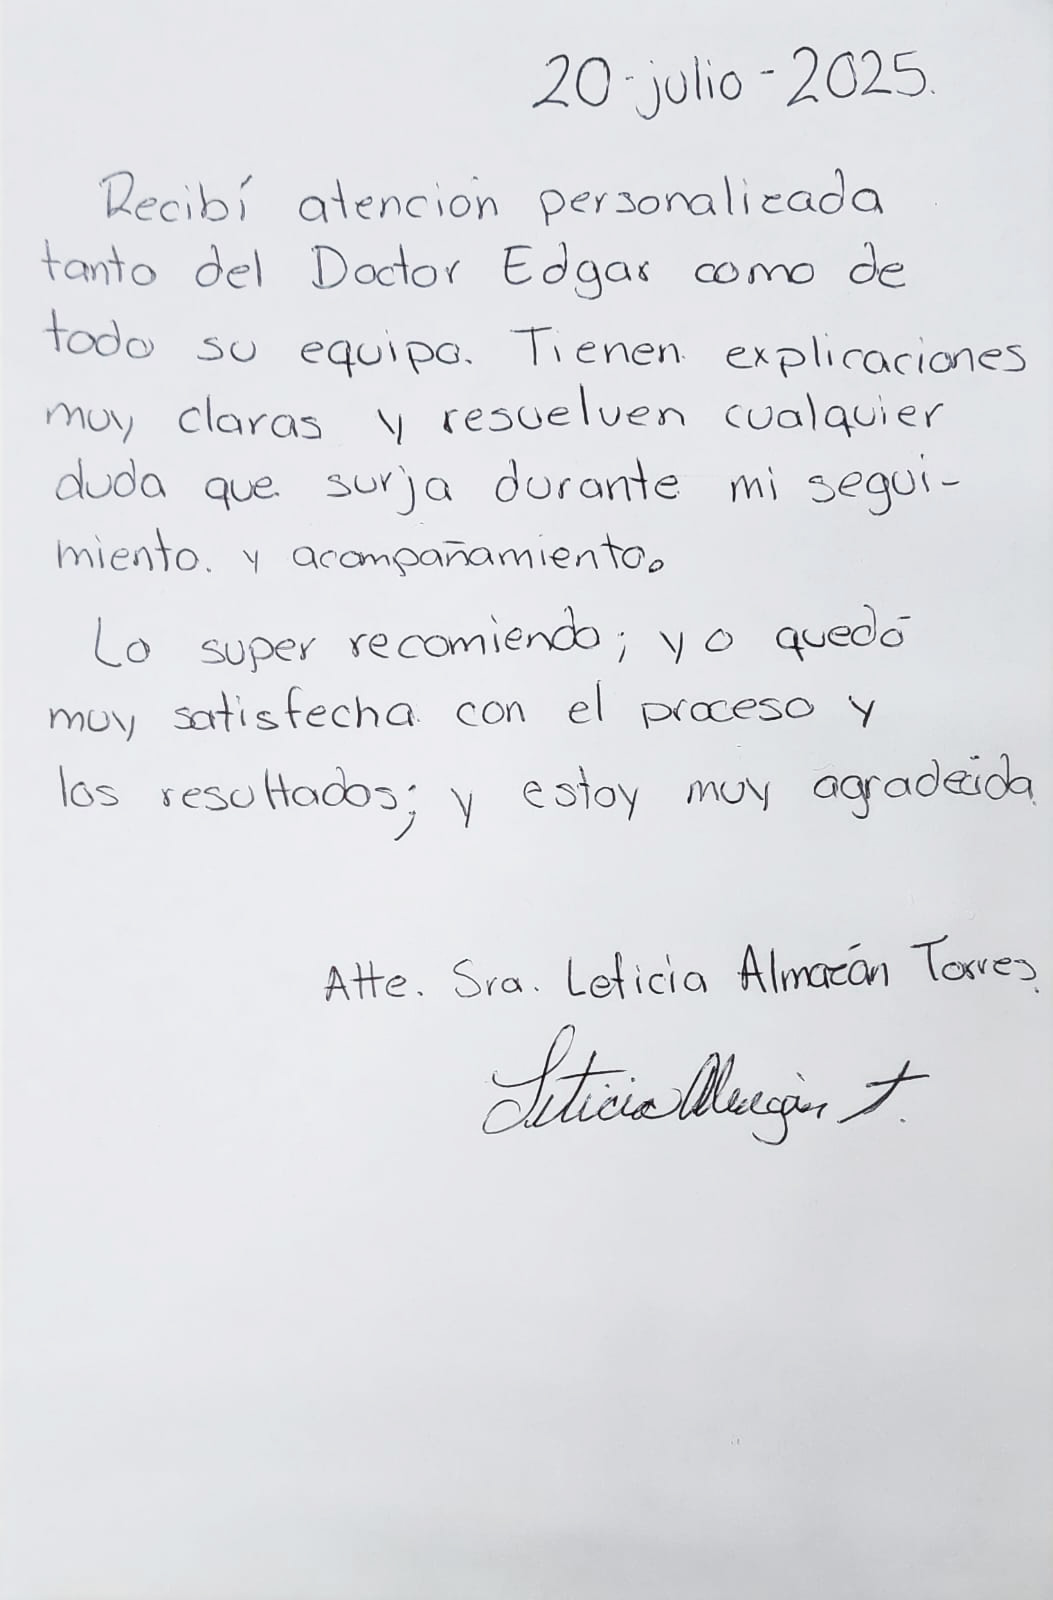 20-julio-2025.
Recibí atención personalizada
tanto del Doctor Edgar como de
todo su equipo. Tienen explicaciones
muy claras y resuelven cualquier
duda que surja durante mi segui-
miento. y acompañamiento.
Lo super recomiendo; yo quedó
muy satisfecha con el proceso y
los resultados; y estoy muy agradecida.
Atte. Sra. Leticia Almazán Torres.
Leticia Almazán T.